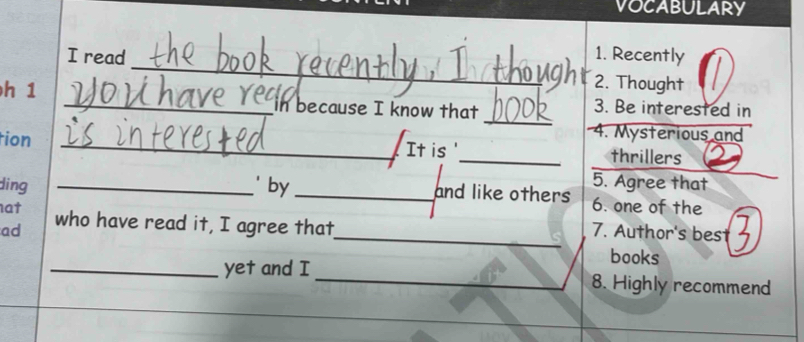 VOCABULARY
I read the book recently, I thought
you have read in because I know that book
is interested. It is '
' by and like others
who have read it, I agree that
yet and I
1. Recently
2. Thought
3. Be interested in
4. Mysterious and
thrillers
5. Agree that
6. one of the
7. Author's best
books
8. Highly recommend
1
2
3